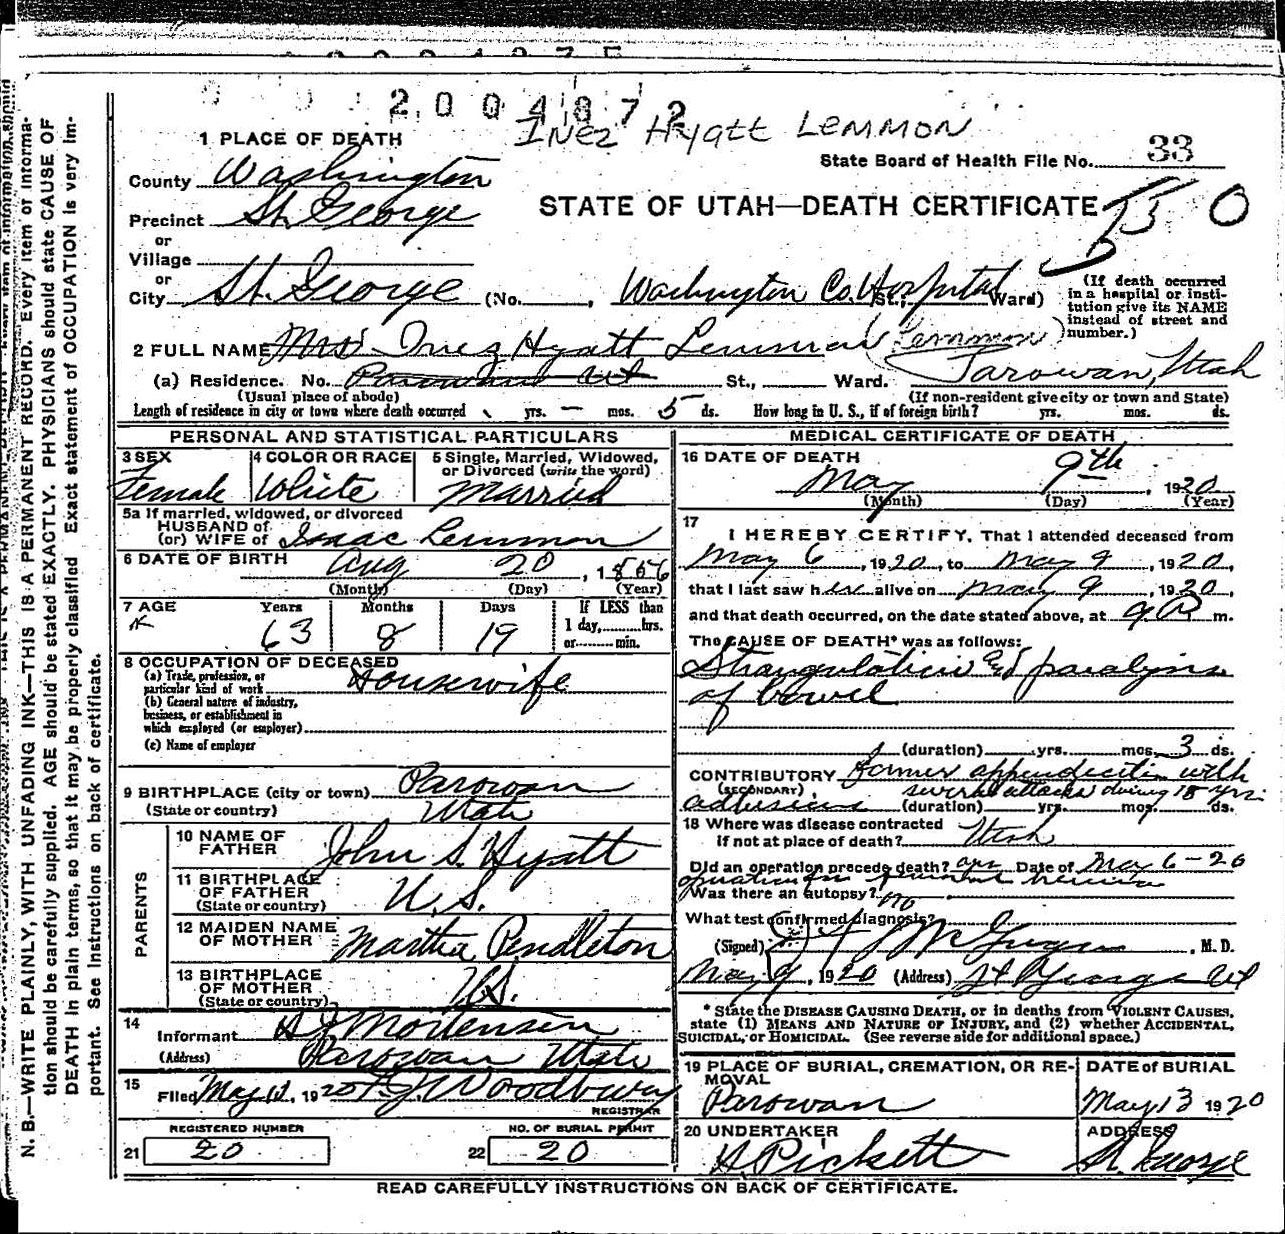 2004872
Inez Hyatt Lemmon
1 PLACE OF DEATH
State Board of Health File No. 33
County Washington
STATE OF UTAH—DEATH CERTIFICATE
Precinct St. George
or
Village
or
City St. George (No. , Washington Co. Hospital St.; Ward)
(If death occurred in a hospital or institution give its NAME instead of street and number.)
2 FULL NAME Mrs Inez Hyatt Lemmon (Lemmon)
(a) Residence. No. Parowan Ut St., Ward. Parowan, Utah
(Usual place of abode) (If non-resident give city or town and State)
Length of residence in city or town where death occurred yrs. — mos. 5 ds. How long in U. S., if of foreign birth? yrs. mos. ds.
PERSONAL AND STATISTICAL PARTICULARS
3 SEX Female
4 COLOR OR RACE White
5 Single, Married, Widowed, or Divorced (write the word) Married
5a If married, widowed, or divorced
HUSBAND of
(or) WIFE of Isaac Lemmon
6 DATE OF BIRTH Aug 20, 1856
(Month) (Day) (Year)
7 AGE Years Months Days If LESS than
63 8 19 1 day, hrs.
or min.
8 OCCUPATION OF DECEASED
(a) Trade, profession, or particular kind of work Housewife
(b) General nature of industry, business, or establishment in which employed (or employer)
(c) Name of employer
9 BIRTHPLACE (city or town) Parowan
(State or country) Utah
PARENTS
10 NAME OF FATHER John S. Hyatt
11 BIRTHPLACE OF FATHER (State or country) U. S.
12 MAIDEN NAME OF MOTHER Martha Pendleton
13 BIRTHPLACE OF MOTHER (State or country) U.S.
14
Informant Mortensen
(Address) Parowan Utah
15
Filed May 12, 1920 Woodbury
REGISTRAR
REGISTERED NUMBER NO. OF BURIAL PERMIT
21 20 22 20
MEDICAL CERTIFICATE OF DEATH
16 DATE OF DEATH
May 9th, 1920
(Month) (Day) (Year)
17
I HEREBY CERTIFY, That I attended deceased from
May 6, 1920, to May 9, 1920,
that I last saw her alive on May 9, 1920,
and that death occurred, on the date stated above, at 9 P. m.
The CAUSE OF DEATH* was as follows:
Strangulation and paralysis
of bowel
(duration) yrs. mos. 3 ds.
CONTRIBUTORY former appendicitis with
(SECONDARY) several attacks during 18 yrs
adhesions (duration) yrs. mos. ds.
18 Where was disease contracted
if not at place of death? Utah
Did an operation precede death? Date of May 6-20
Was there an autopsy? no
What test confirmed diagnosis?
(Signed) , M. D.
May 9, 1920 (Address) St George Ut
* State the DISEASE CAUSING DEATH, or in deaths from VIOLENT CAUSES,
state (1) MEANS AND NATURE OF INJURY, and (2) whether ACCIDENTAL,
SUICIDAL, or HOMICIDAL. (See reverse side for additional space.)
19 PLACE OF BURIAL, CREMATION, OR REMOVAL DATE OF BURIAL
Parowan May 13 1920
20 UNDERTAKER ADDRESS
Pickett St George
READ CAREFULLY INSTRUCTIONS ON BACK OF CERTIFICATE.
N. B.—WRITE PLAINLY, WITH UNFADING INK—THIS IS A PERMANENT RECORD. Every item of informa-
tion should be carefully supplied. AGE should be stated EXACTLY. PHYSICIANS should state CAUSE OF
DEATH in plain terms, so that it may be properly classified. Exact statement of OCCUPATION is very im-
portant. See instructions on back of certificate.